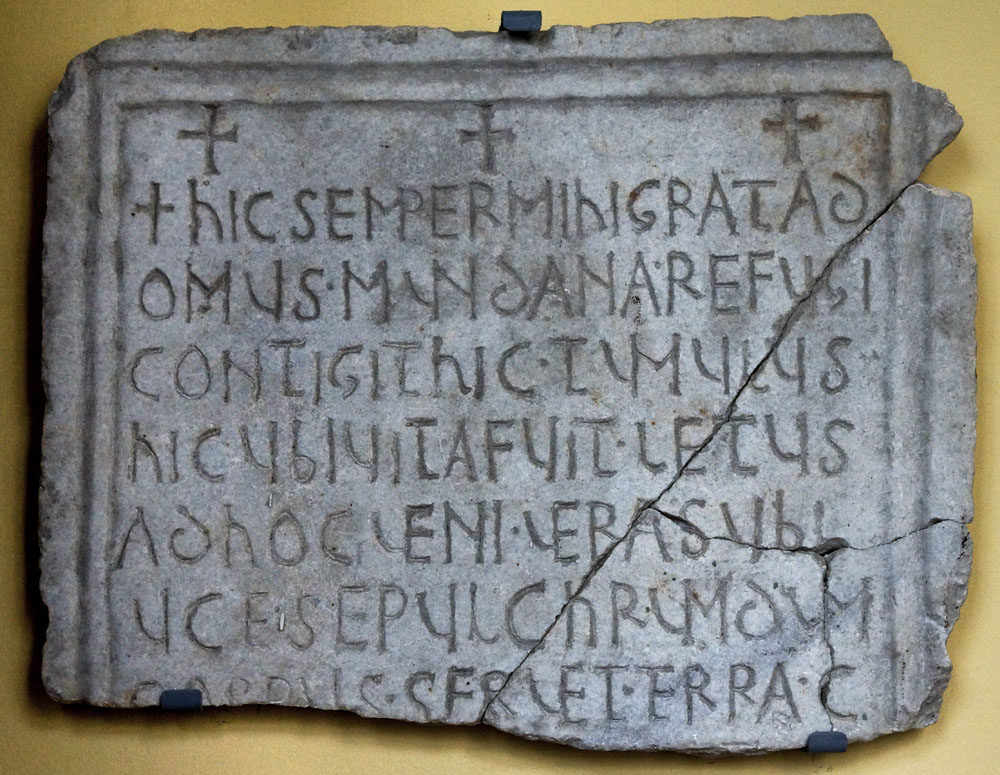 + hIC SEMPER MIhI GRATA D
OMUS · MUNDANA · REFUGI
CONTIGIT hIC · TUMULUS
hIC UbI UITA FUIT · LETUS
AD hOC UENI · UERA · SUb L
UCE · SEPULChRUM DUM
CORPUS · SERUET · TERRA · C